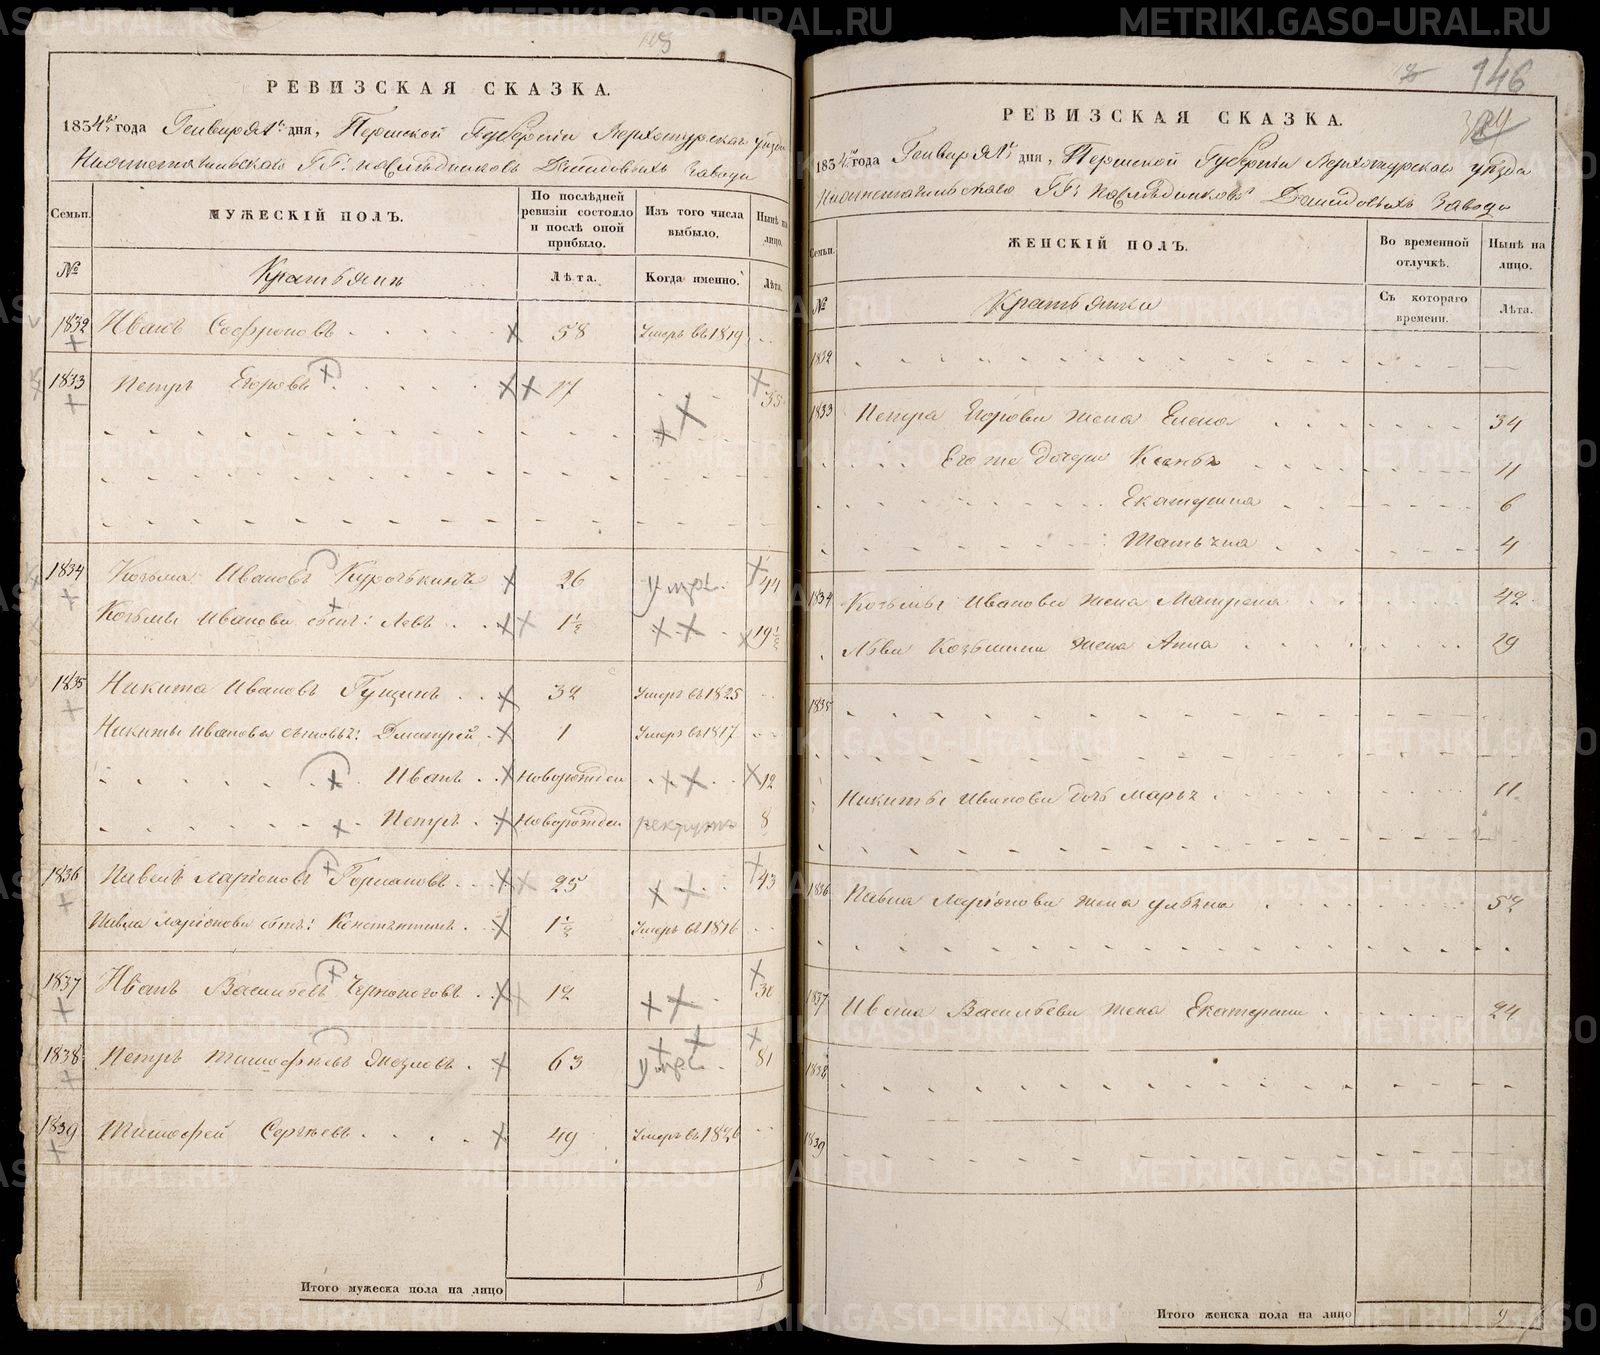 РЕВИЗСКАЯ СКАЗКА.
1834го года Генваря 1го дня, Пермской Губернiи Верхотурскаго уѣзда
Нижнетагильскаго ГГ: наслѣдниковъ Демидовыхъ Завода
Семьи.
МУЖЕСКIЙ ПОЛЪ.
По послѣдней ревизiи состояло и послѣ оной прибыло.
Изъ того числа выбыло.
Нынѣ на лицо.
№
Крестьянъ
Лѣта.
Когда именно.
Лѣта.
1832 Иванъ Софроновъ 58 Умеръ въ 1819
1833 Петръ Егоровъ 17 35
1834 Козьма Ивановъ Курочькинъ 26 умре. 44
Козьмы Иванова сынъ: Левъ 1½ 19½
1835 Никита Ивановъ Гущинъ 32 Умеръ въ 1825
Никиты Иванова сыновья: Дмитрей 1 Умеръ въ 1817
Иванъ Новорожден 12
Петръ Новорожден рекрутъ 8
1836 Павелъ Ларiоновъ 25 43
Павла Ларiонова сынъ: Констянтинъ 1½ Умеръ въ 1816
1837 Иванъ Васильевъ Черноноговъ 12 30
1838 Петръ Тимофѣевъ 63 умре. 81
1839 Тимофей Сергѣевъ 49 Умеръ въ 1826
Итого мужеска пола на лицо 8
146
РЕВИЗСКАЯ СКАЗКА.
1834го года Генваря 1го дня, Пермской Губернiи Верхотурскаго уѣзда
Нижнетагильскаго ГГ: наслѣдниковъ Демидовыхъ Завода
Семьи.
ЖЕНСКIЙ ПОЛЪ.
Во временной отлучкѣ.
Нынѣ на лицо.
№
Крестьянки
Съ котораго времени.
Лѣта.
1832
1833 Петра Егорова жена Елена 34
Его же дочери Ксенья 11
Екатерина 6
Татьяна 4
1834 Козьмы Иванова жена Матрена 42
Льва Козьмина жена Анна 29
1835
Никиты Иванова дочь Марья 11
1836 Павла Ларiонова жена Ульяна 52
1837 Ивана Васильева жена Екатерина 24
1838
1839
Итого женска пола на лицо 9
METRIKI.GASO-URAL.RU